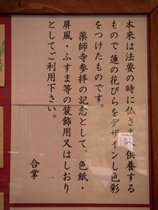 本来は法要の時に仏さまに供養する
もので蓮の花びらをデザインし色彩
をつけたものです。
薬師寺参拝の記念として、色紙・
屏風・ふすま等の装飾用又はしおり
としてご利用下さい。
合掌